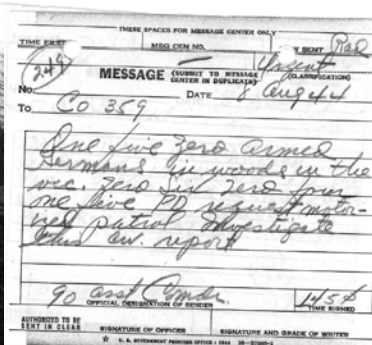 THESE SPACES FOR MESSAGE CENTER ONLY
TIME FILED MSG CEN NO. SENT Rad
249
Urgent
MESSAGE (SUBMIT TO MESSAGE CENTER IN DUPLICATE) (CLASSIFICATION)
No. DATE 8 Aug 44
To CO 359
One five zero armed
Germans in woods in the
vic. zero six zero four
one five PD request motor-
ized patrol investigate
this Div. report
90 asst Comdr. 1450
OFFICIAL DESIGNATION OF SENDER TIME SIGNED
AUTHORIZED TO BE
SENT IN CLEAR SIGNATURE OF OFFICER SIGNATURE AND GRADE OF WRITER
U. S. GOVERNMENT PRINTING OFFICE